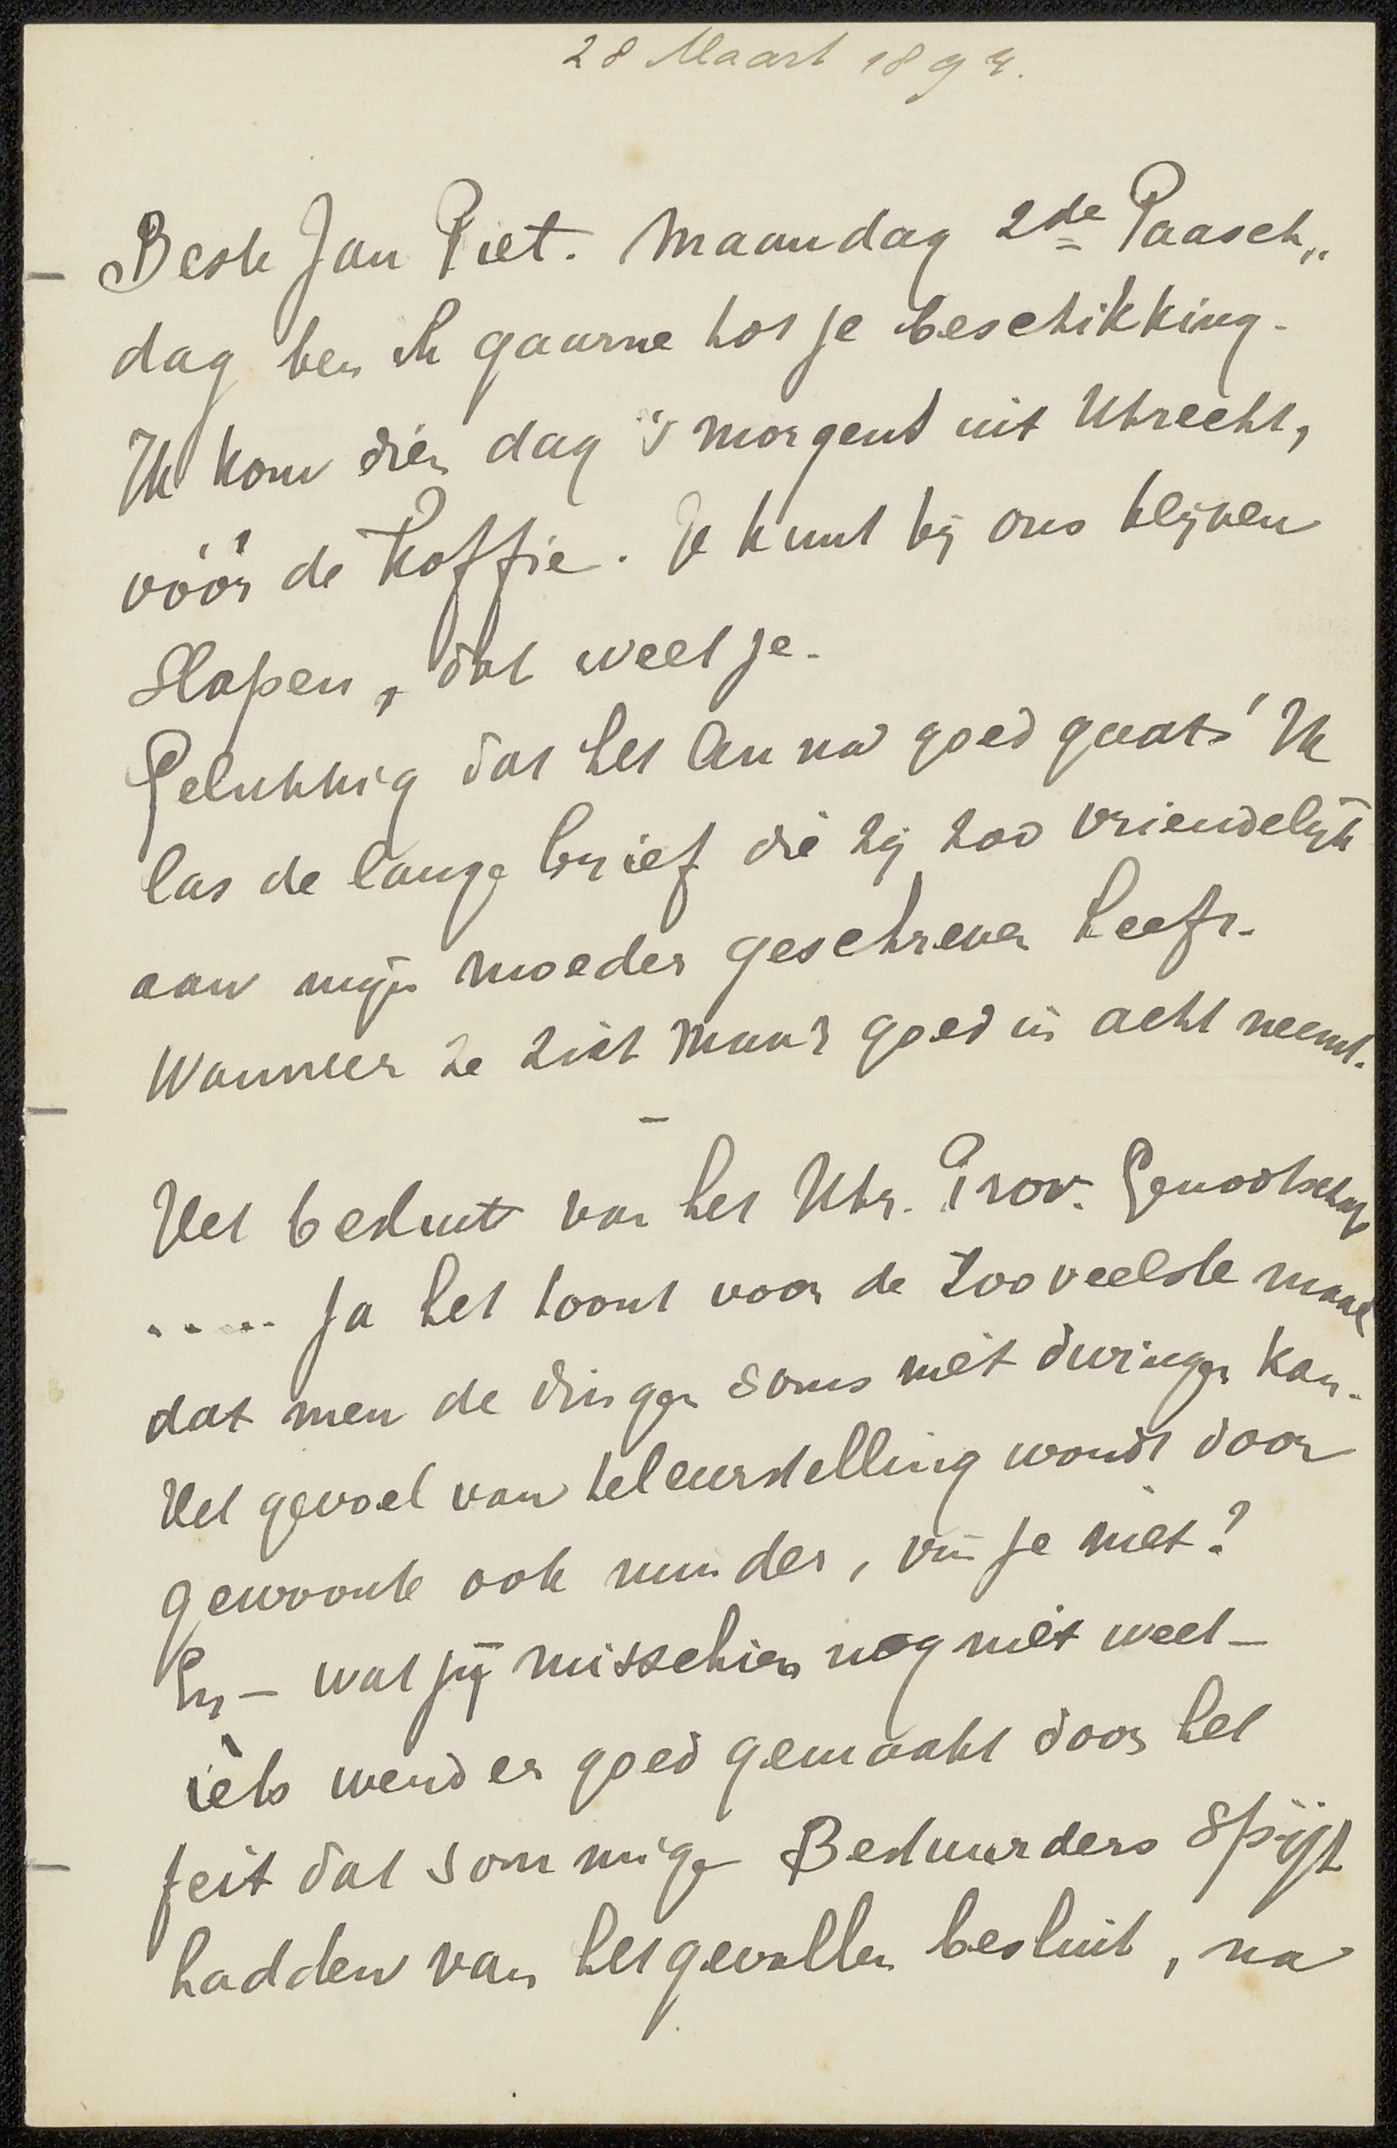 28 Maart 1894.
Beste Jan Piet. Maandag 2de Paasch„
dag ben ik gaarne tot je beschikking.
Ik kom dien dag 's morgens uit Utrecht,
vóór de koffie. Je kunt bij ons blijven
slapen, dat weet je.
Gelukkig dat het Anna goed gaat! Ik
las de lange brief die zij zoo vriendelijk
aan mijn moeder geschreven heeft.
Wanneer ze zich maar goed in acht neemt.
—
Het besluit van het Utr. Prov. Genootschap
..... Ja het toont voor de zooveelste maal
dat men de dingen soms niet dwingen kan.
Het gevoel van teleurstelling wordt door
gewoonte ook minder, vin je niet?
En — wat jij misschien nog niet weet —
iets werd er goed gemaakt door het
feit dat sommige Bestuurders spijt
hadden van het gevallen besluit, na